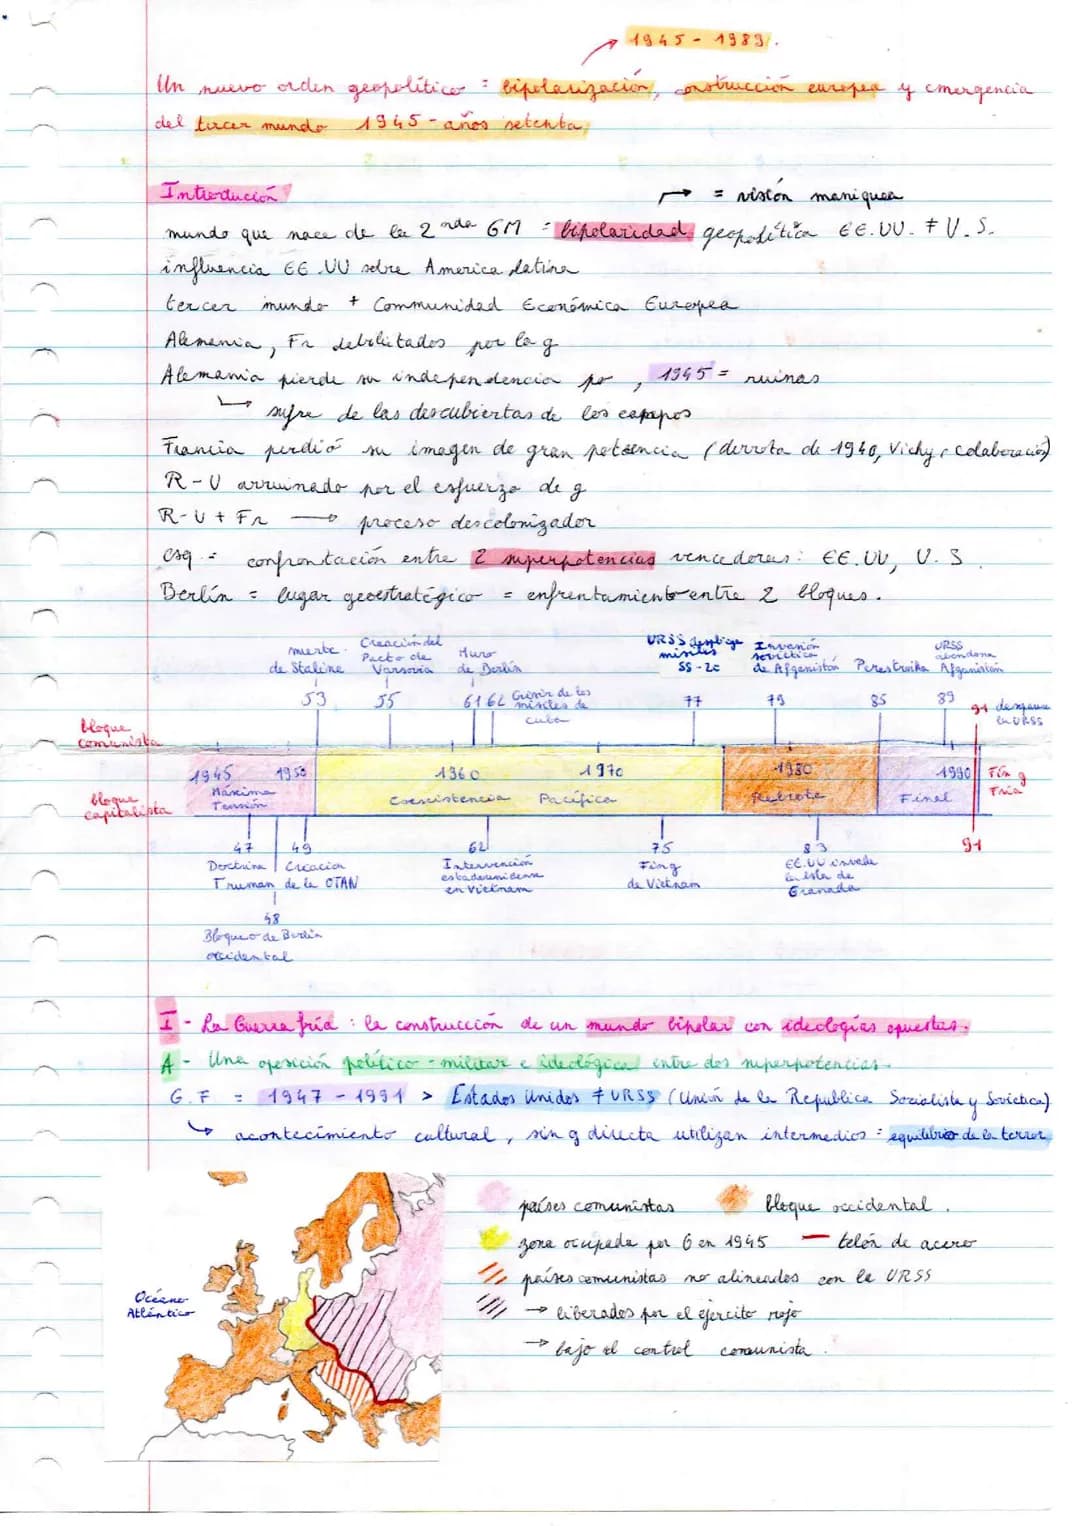 1945 - 1989.
Un nuevo orden geopolítico = bipolarización, construcción europea y emergencia
del tercer mundo 1945 - años setenta,
Introducción
→ = visión maniquea
mundo que nace de la 2 nda GM = bipolaridad geopolítica EE.UU. ≠ U.S.
influencia EE.UU sobre America latina
tercer mundo + Communidad Económica Europea
Alemania, Fr debilitados por la g
Alemania pierde su independencia po , 1945 = ruinas
↳ sufre de las descubiertas de los campos
Francia perdió su imagen de gran potencia (derrota de 1940, Vichy, colaboración)
R-U arruinado por el esfuerzo de g
R-U + Fr → proceso descolonizador
csq = confrontación entre 2 superpotencias vencedoras: EE.UU, U.S.
Berlín = lugar geoestratégico = enfrentamiento entre 2 bloques.
muerte de Staline
Creación del Pacto de Varsovia
Muro de Berlín
URSS despliega misiles SS-20
Invasión soviética de Afganistán
Perestroika
URSS abandona Afganistán
53 55 61 62 Crisis de los misiles de Cuba 77 79 85 89 91 desaparece la URSS
bloque comunista
1945 1950 1960 1970 1980 1990 Fin g Fría
Máxima Tensión Coexistencia Pacífica Rebrote Final
bloque capitalista
47 49 62 75 83 91
Doctrina Truman
Creación de la OTAN
Intervención estadounidense en Vietnam
Fin g de Vietnam
EE.UU invade la isla de Granada
48
Bloqueo de Berlín
occidental
I - La Guerra fría : la construcción de un mundo bipolar con ideologías opuestas.
A - Una oposición político-militar e ideológica entre dos superpotencias.
G.F = 1947 - 1991 > Estados Unidos ≠ URSS (Unión de la Republica Socialista y Sovietica)
↳ acontecimiento cultural, sin g directa utilizan intermedios = equilibrio de la terror
países comunistas bloque occidental.
zona ocupada por G en 1945 telón de acero
países comunistas no alineados con la URSS
→ liberados por el ejercito rojo
→ bajo el control comunista.
Océano
Atlántico